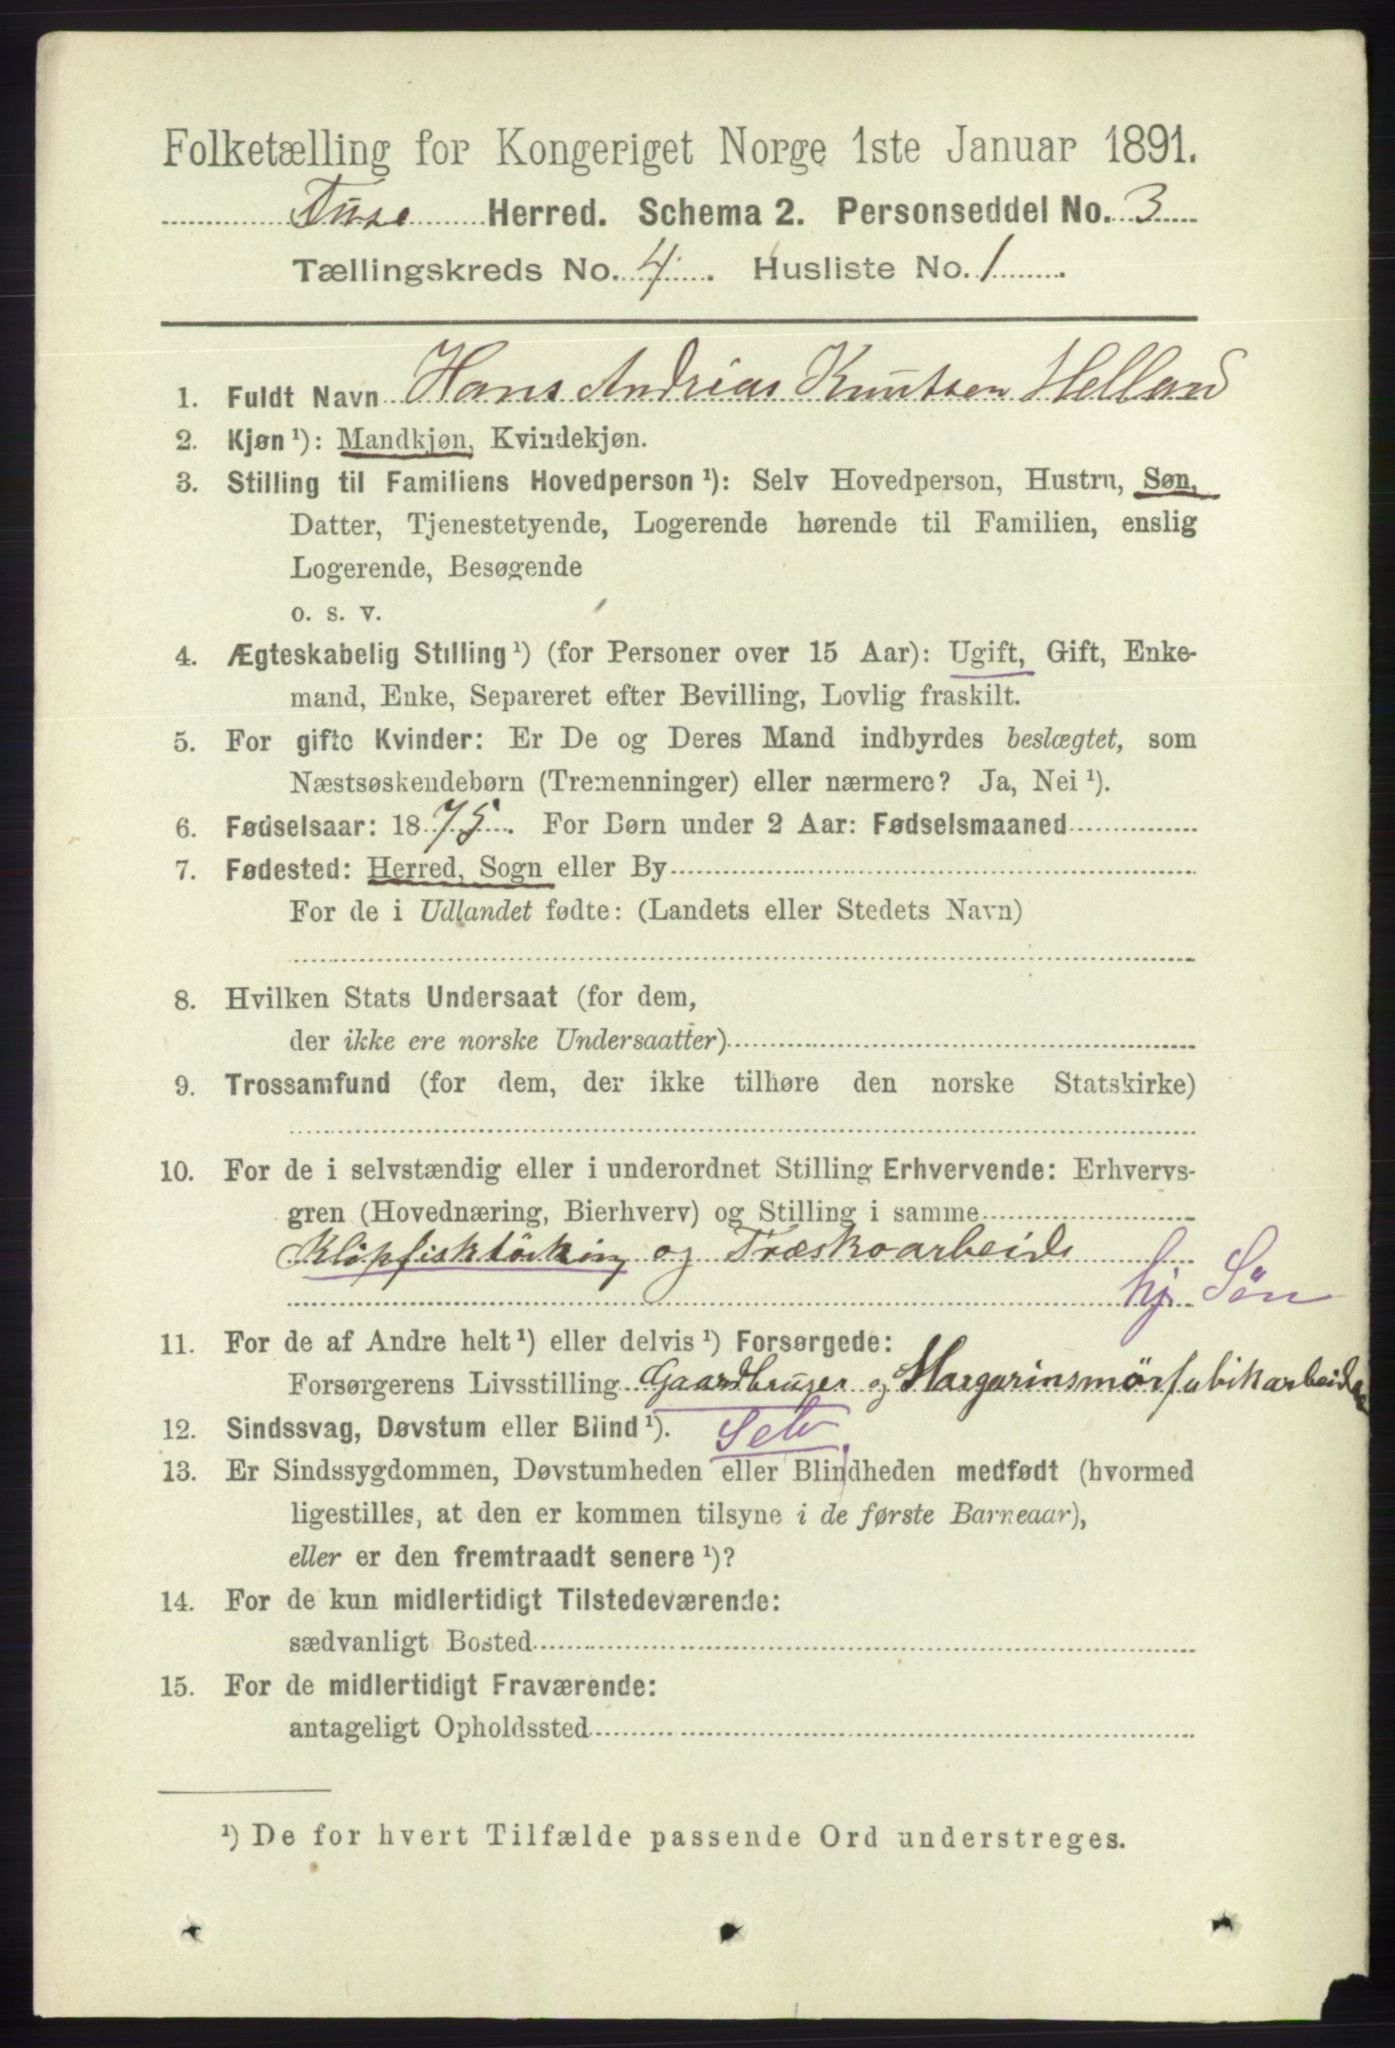 Folketælling for Kongeriget Norge 1ste Januar 1891.
Fuse Herred. Schema 2. Personseddel No. 3
Tællingskreds No. 4. Husliste No. 1.
1. Fuldt Navn Hans Andrias Knutsen Helland
2. Kjøn ¹): Mandkjøn, Kvindekjøn.
3. Stilling til Familiens Hovedperson ¹): Selv Hovedperson, Hustru, Søn,
Datter, Tjenestetyende, Logerende hørende til Familien, enslig
Logerende, Besøgende
o. s. v.
4. Ægteskabelig Stilling ¹) (for Personer over 15 Aar): Ugift, Gift, Enke-
mand, Enke, Separeret efter Bevilling, Lovlig fraskilt.
5. For gifte Kvinder: Er De og Deres Mand indbyrdes beslægtet, som
Næstsøskendebørn (Tremenninger) eller nærmere? Ja, Nei ¹).
6. Fødselsaar: 1875. For Børn under 2 Aar: Fødselsmaaned
7. Fødested: Herred, Sogn eller By
For de i Udlandet fødte: (Landets eller Stedets Navn)
8. Hvilken Stats Undersaat (for dem,
der ikke ere norske Undersaatter)
9. Trossamfund (for dem, der ikke tilhøre den norske Statskirke)
10. For de i selvstændig eller i underordnet Stilling Erhvervende: Erhvervs-
gren (Hovednæring, Bierhverv) og Stilling i samme
Klipfisktörking og Træskoarbeide
hj. Sön
11. For de af Andre helt ¹) eller delvis ¹) Forsørgede:
Forsørgerens Livsstilling Gaardbruger og Margarinsmörfabikarbeider
12. Sindssvag, Døvstum eller Blind ¹). Selv.
13. Er Sindssygdommen, Døvstumheden eller Blindheden medfødt (hvormed
ligestilles, at den er kommen tilsyne i de første Barneaar),
eller er den fremtraadt senere ¹)?
14. For de kun midlertidigt Tilstedeværende:
sædvanligt Bosted
15. For de midlertidigt Fraværende:
antageligt Opholdssted
¹) De for hvert Tilfælde passende Ord understreges.